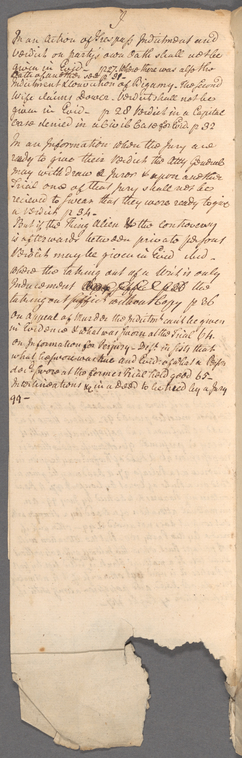 7
In an Action of Trespass Indictment and
Verdict on party's own Oath shall not be
given in Evid - p 27. Where there was also the
Oath of another
Indictment & Conviction of Bigamy. the second
wife claims Dower. Verdict shall not be
given in Evid - p 28 Verdict in a Capital
Case denied in a Civil Case for Evid p 32
In an Information when the Jury are
ready to give their Verdict the Atty General
may withdraw a Juror & upon another
Trial one of that Jury shall not be
recieved to swear that they were ready to give
a Verdict p 34 -
But if the Thing alien & the controversy
is afterwards between private persons
Verdict may be given in Evid
where the taking out of a Writ is only
Inducement the
taking out without Copy p 36
On appeal of Murder the Indictmt may be given
in Evidence & what was sworn at the Trial 64.
on Information for Perjury - Deft insists that
what he swore was true and Evid: of what a
sworn at the former trial held good 65.
in a Deed to be tried by a Jury
99 -